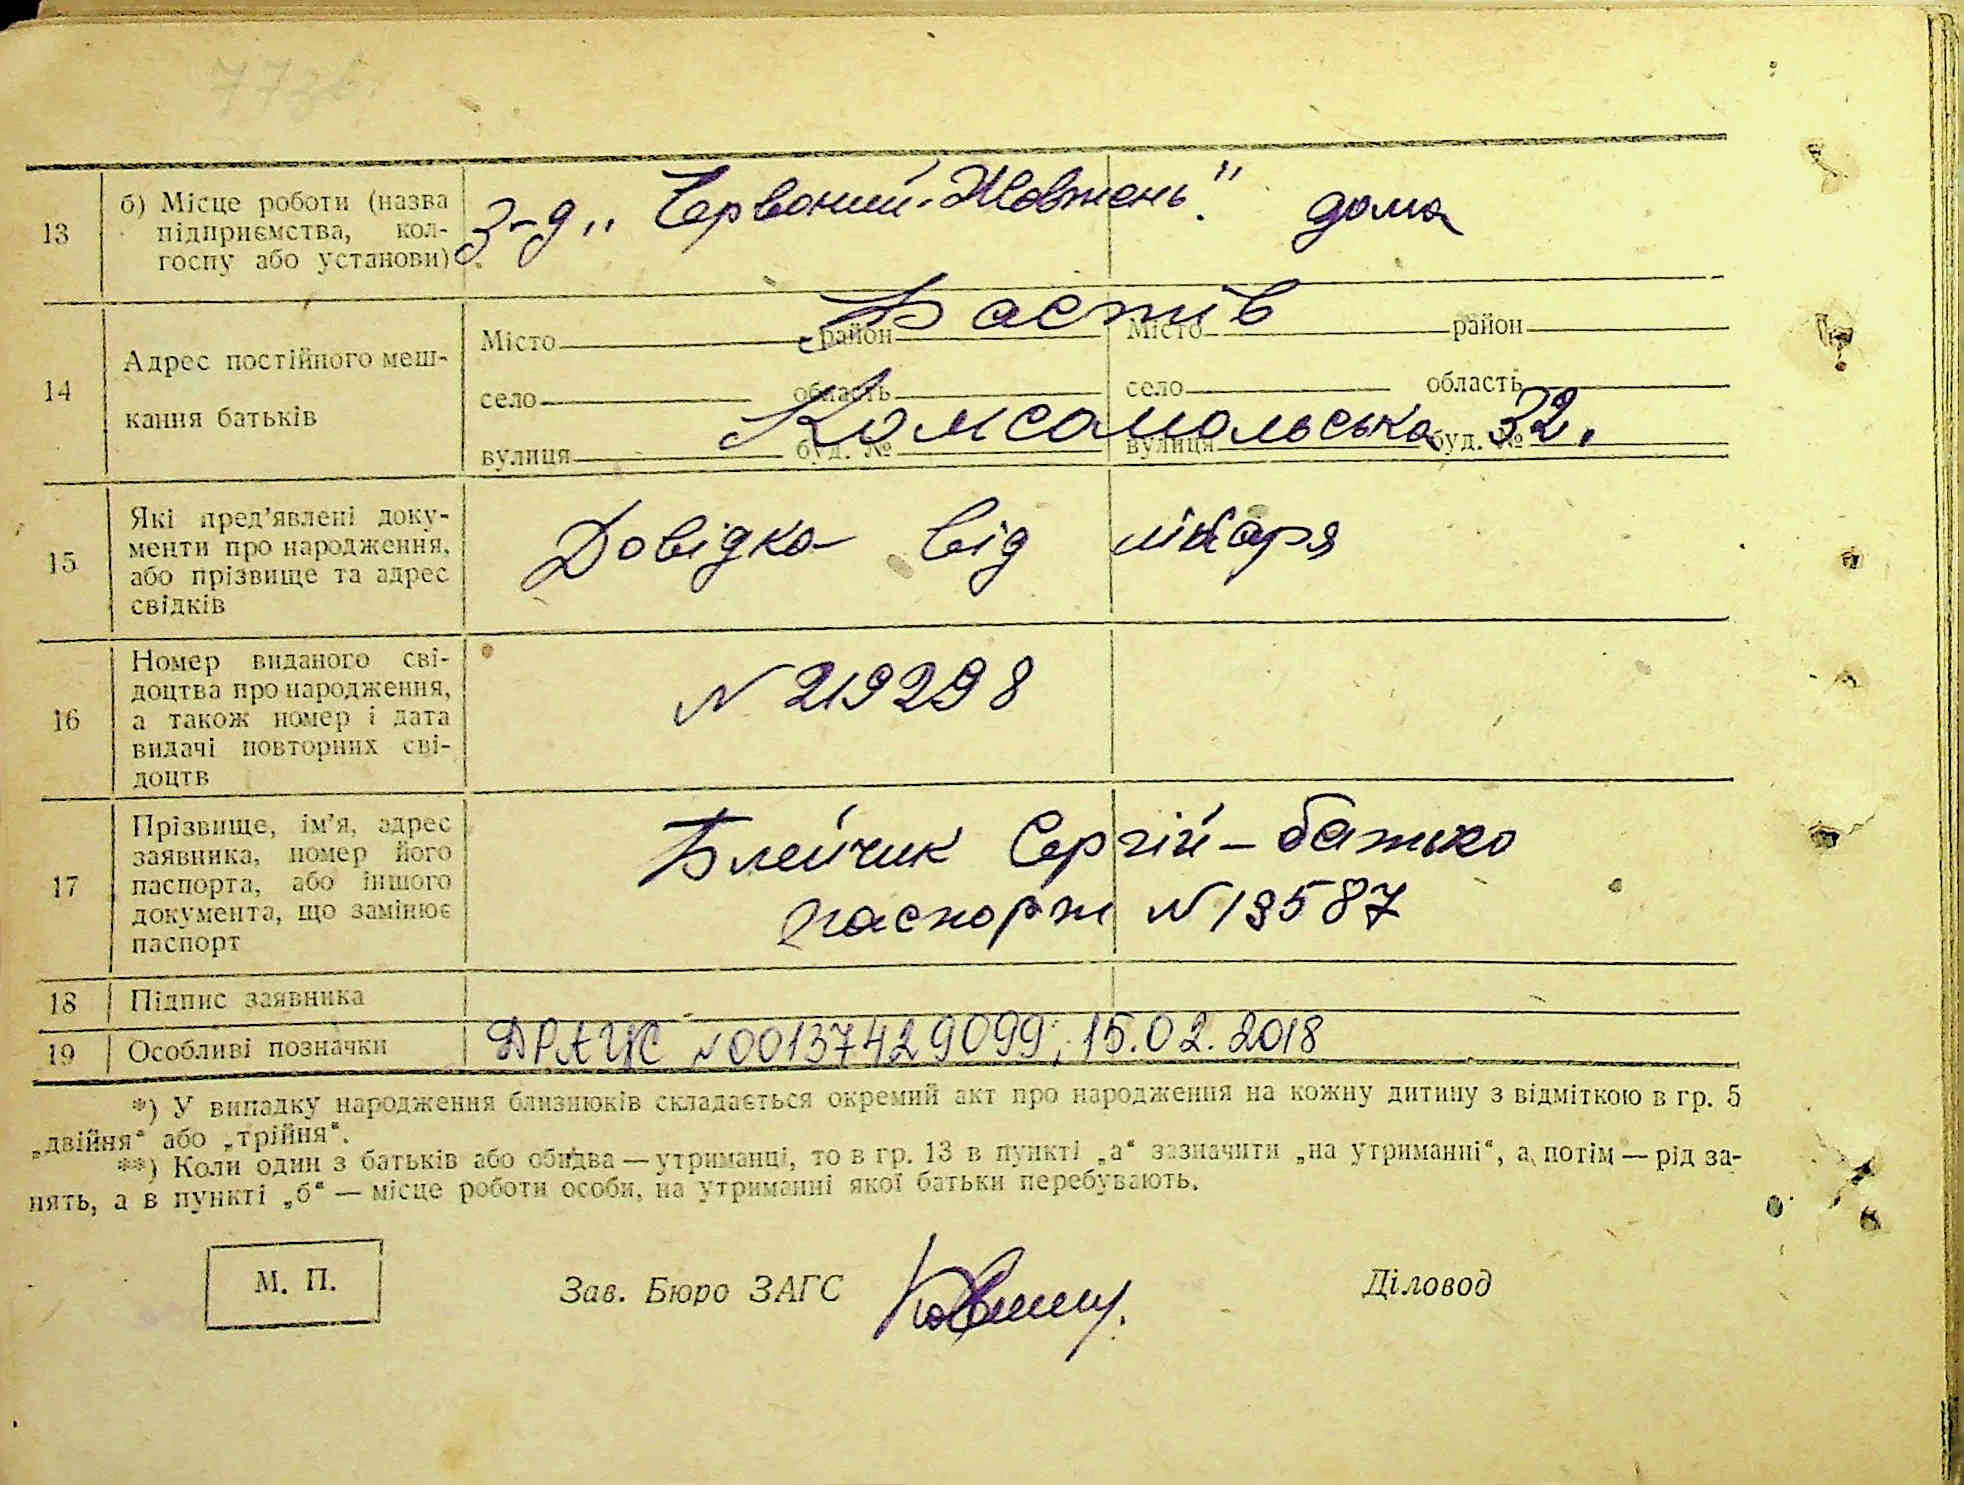 77зв.
13
б) Місце роботи (назва
підприємства, кол-
госпу або установи)
З-д „Червоний-Жовтень".
дома
14
Адрес постійного меш-
кання батьків
Фастів
Місто район Місто район
село область село область
Комсомольська 32.
вулиця буд. № вулиця буд. №
15
Які пред'явлені доку-
менти про народження,
або прізвище та адрес
свідків
Довідка від лікаря
16
Номер виданого сві-
доцтва про народження,
а також номер і дата
видачі повторних сві-
доцтв
N 219298
17
Прізвище, ім'я, адрес
заявника, номер його
паспорта, або іншого
документа, що замінює
паспорт
Блейчик Сергій – батько
паспорт N 19587
18
Підпис заявника
19
Особливі позначки
ДРАЦС N00137429099; 15.02.2018
*) У випадку народження близнюків складається окремий акт про народження на кожну дитину з відміткою в гр. 5
„двійня“ або „трійня“.
**) Коли один з батьків або обидва — утриманці, то в гр. 13 в пункті „а“ зазначити „на утриманні“, а потім — рід за-
нять, а в пункті „б“ — місце роботи особи, на утриманні якої батьки перебувають.
М. П.
Зав. Бюро ЗАГС
Діловод